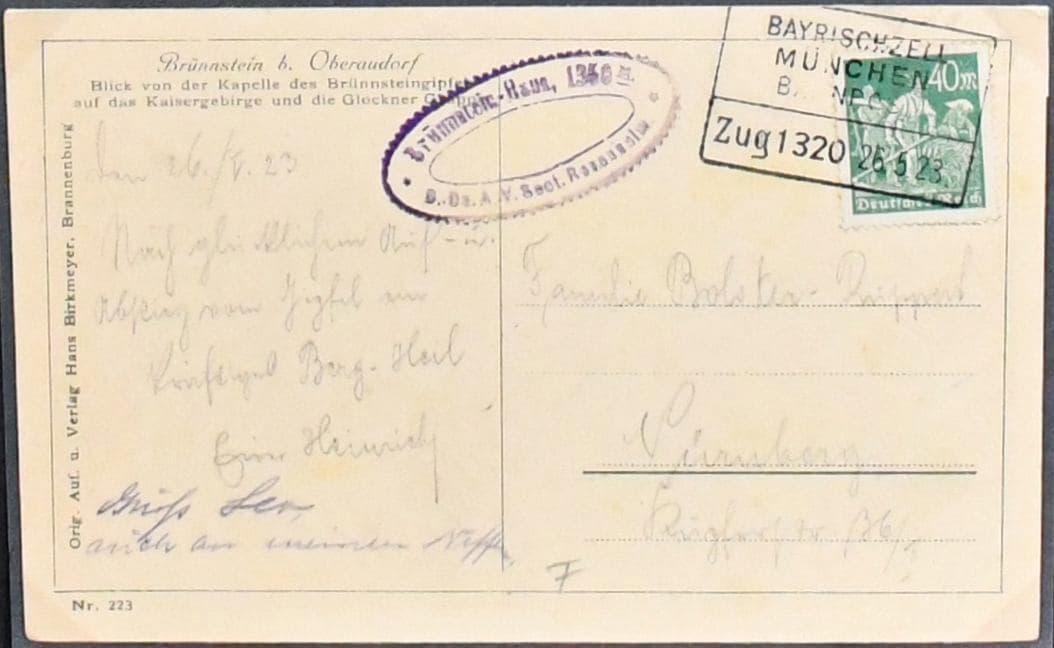 Brünnstein b. Oberaudorf
Blick von der Kapelle des Brünnsteingipfels
auf das Kaisergebirge und die Glockner Gruppe
Brünnstein-Haus, 1360 m.
D. Oe. A. V. Sect. Rosenheim
BAYRISCHZELL
MÜNCHEN
BAHNPOST
Zug 1320 26 5 23
40 M
Deutsches Reich
Orig. Auf. u. Verlag Hans Birkmeyer, Brannenburg
den 26./V. 23
Nach glücklichem Auf- u.
Abstieg vom Gipfel ein
kräftiges Berg-Heil
Euer Heinrich
Gruß
auch an meinen
Familie
Nürnberg
F
Nr. 223